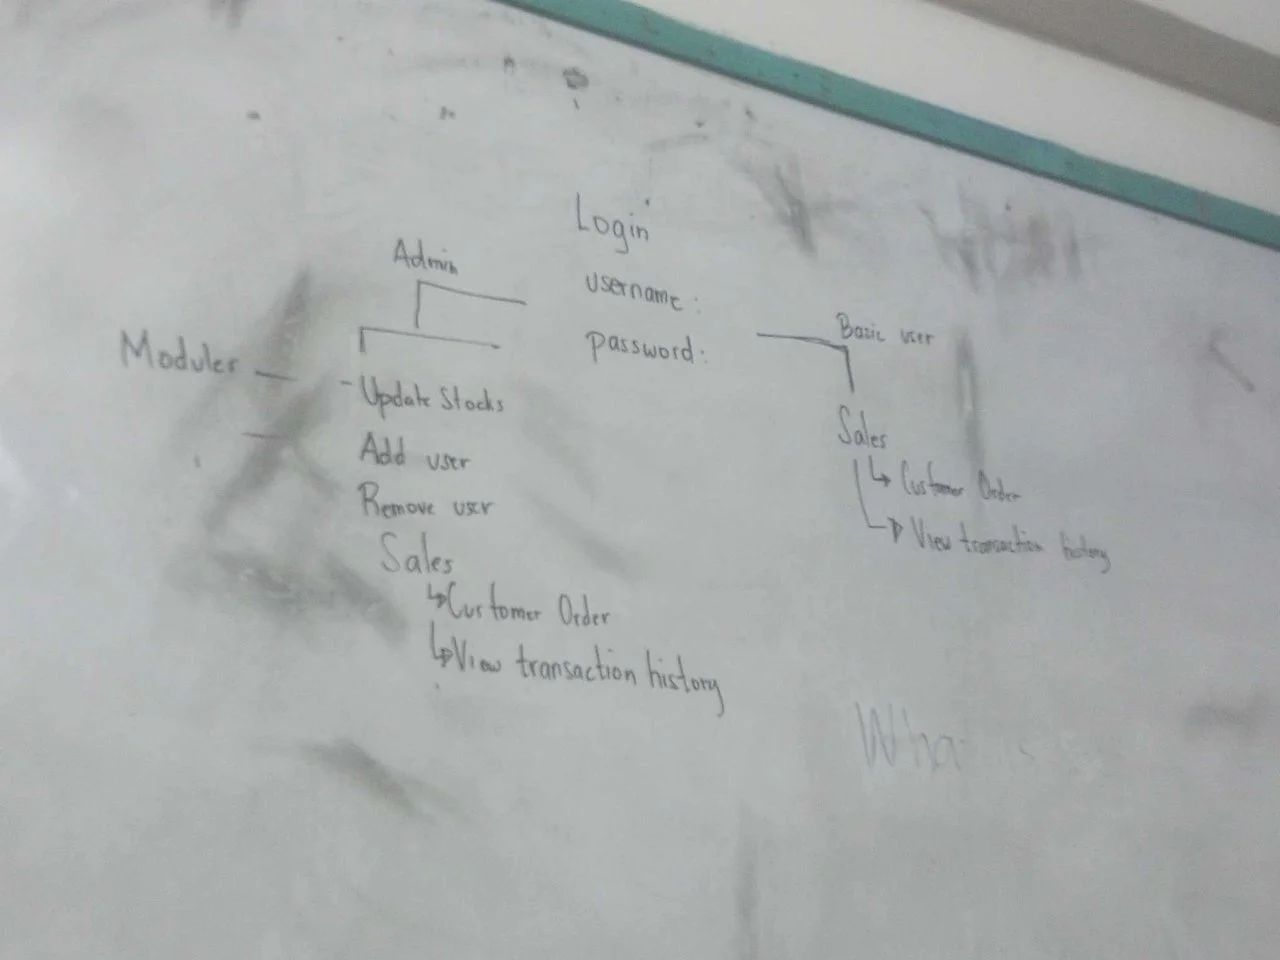 Login
Admin
username:
password:
Basic user
Modules
- Update Stocks
Add user
Remove user
Sales
↳ Customer Order
↳ View transaction history
Sales
↳ Customer Order
↳ View transaction history